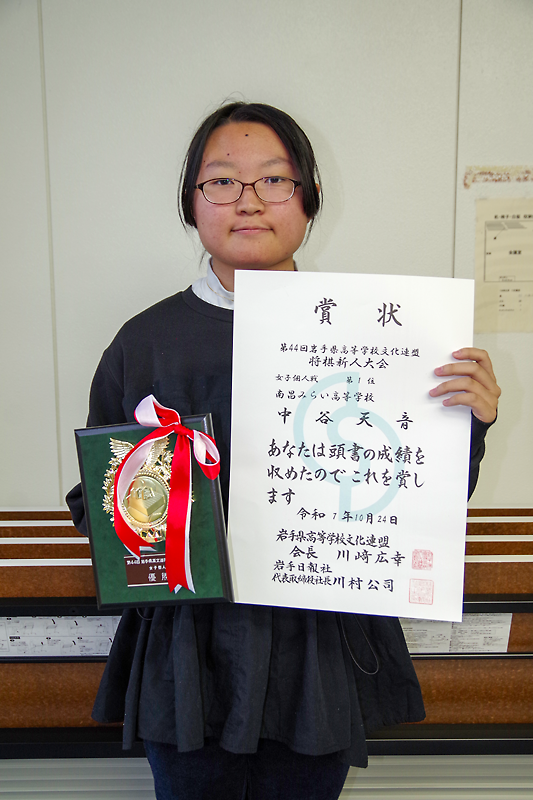 賞状
第44回岩手県高等学校文化連盟
将棋新人大会
女子個人戦 第1位
南昌みらい高等学校
中谷天音
あなたは頭書の成績を
収めたのでこれを賞し
ます
令和7年10月24日
岩手県高等学校文化連盟
会長 川﨑広幸
岩手日報社
代表取締役社長 川村公司